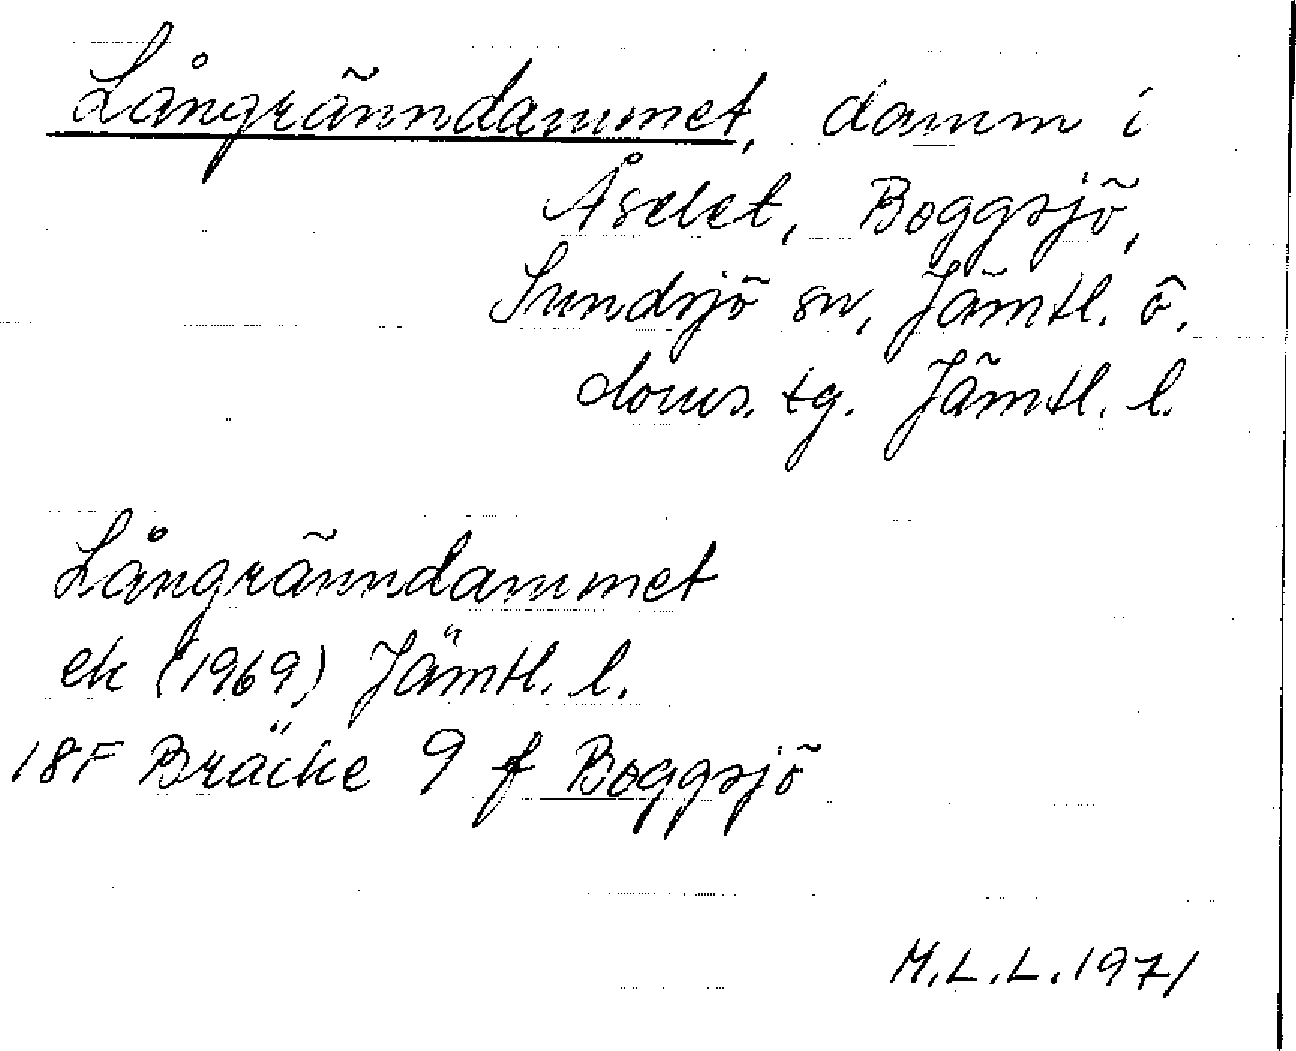 Långränndammet, damm i
Åselet, Boggsjö,
Sundsjö sn, Jämtl. ö.
doms. tg. Jämtl. l.
Långränndammet
ek (1969) Jämtl. l.
18F Bräcke 9 f Boggsjö
M.L.L. 1971